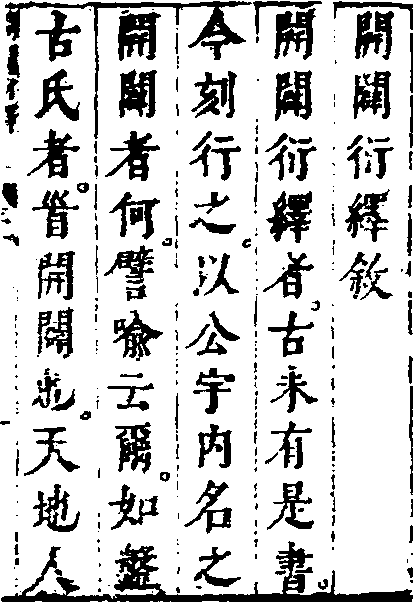 開闢衍繹敘
開闢衍繹者。古未有是書。
今刻行之。以公宇内名之
開闢者何。譬喻云爾。如盤
古氏者。首開闢也。天地人